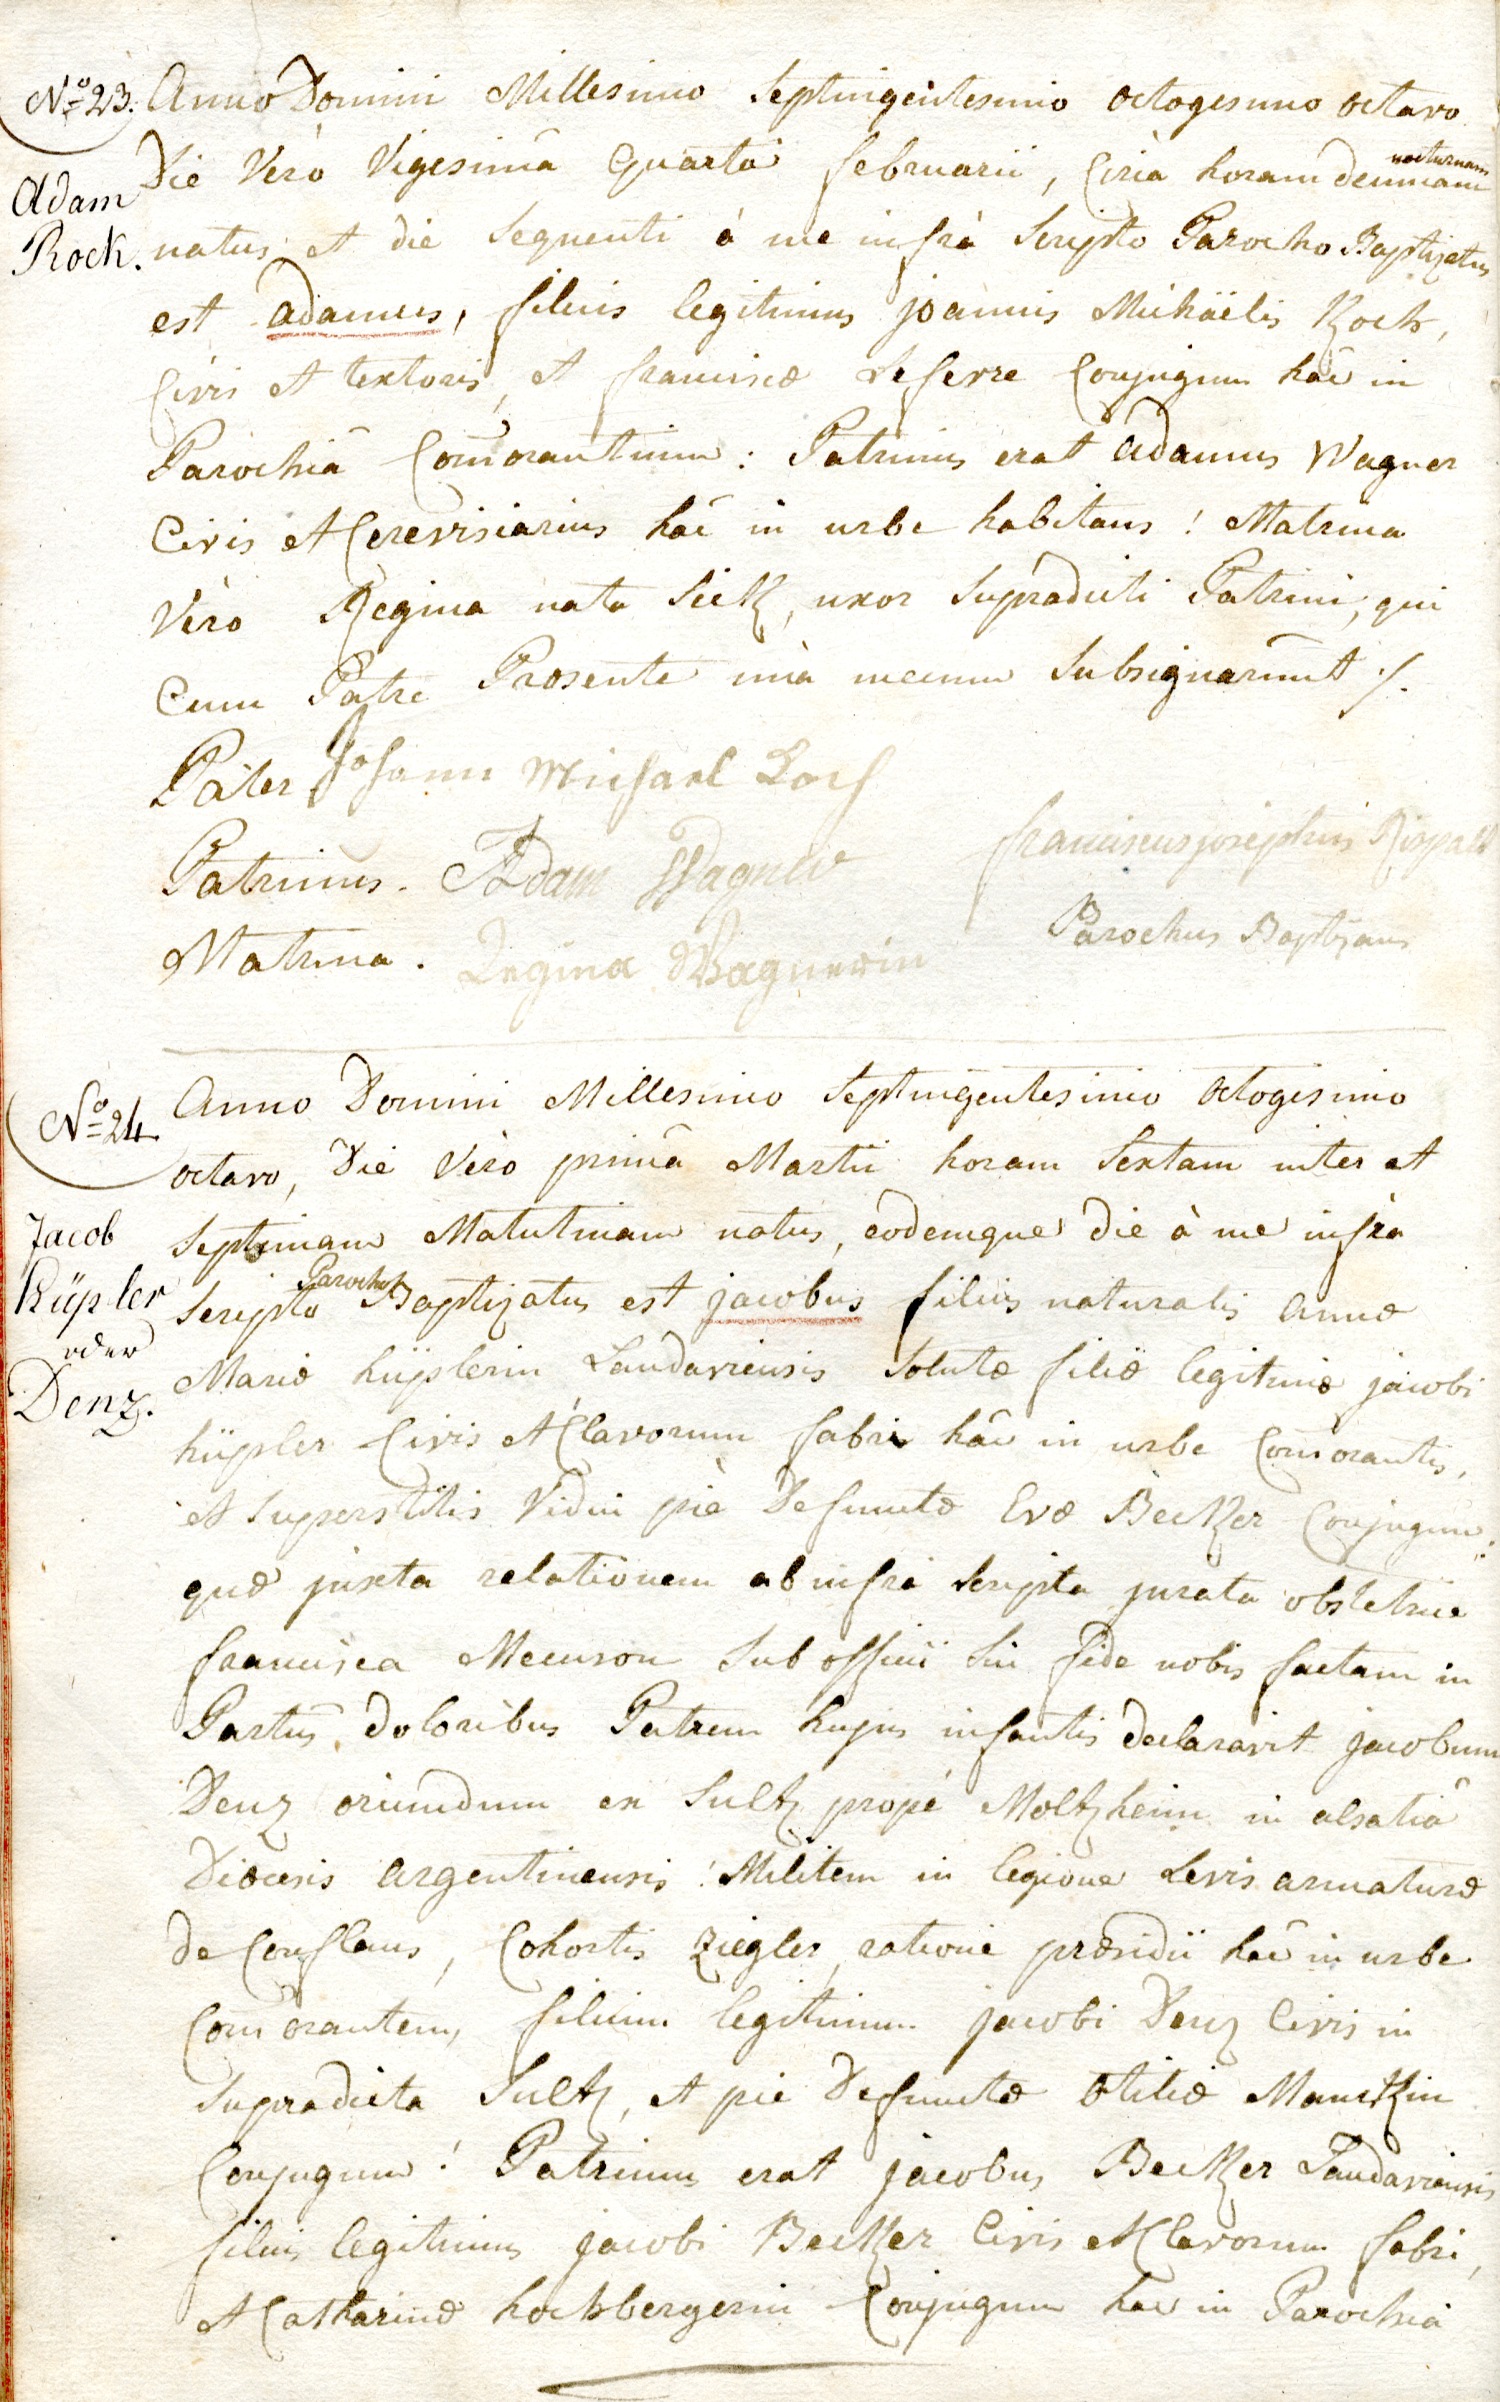 No 23. Anno Domini Millesimo Septingentesimo octogesimo octavo
Die Verò Vigesimâ Quartâ februarii, Circà horam decimam nocturnam
Adam
Rock.
natus et die Sequenti à me infrà Scripto Parocho Baptizatus
est adamus, filius legitimus joannis Michäelis Rock,
Civis et textoris, et franciscæ Lefevre Conjugum hâc in
Parochiâ Com̄orantium: Patrinus erat adamus Wagner
Civis et Cerevisiarius hâc in urbe habitans: Matrina
Verò Regina nata Sick, uxor Supradicti Patrini, qui
Cum Patre Præsente unà mecum Subsignarunt ./.
Pater Johann Michael Roch
Patrinus. Adam Wagner
franciscus josephus
Matrina. Regina Wagnerin
Parochus Baptizans
No 24 Anno Domini Millesimo Septingentesimo Octogesimo
octavo, Die Verò primâ Martii horam Sextam inter et
Jacob
Küpler
oder
Denz.
Septimam Matutinam natus, eodemque die à me infrà
Scripto Parocho Baptizatus est jacobus filius naturalis annæ
Mariæ küplerin Landaviensis Solutæ filiæ legitimæ jacobi
küpler Civis et Clavorum fabri hâc in urbe Com̄orantis,
et Superstitis Vidui piè Defunctæ Evæ Becker Conjugum:
quæ juxta relationem ab infrà Scripta jurata obstetrice
francisca Mecuson Sub officii Sui fide nobis factam in
Partûs doloribus Patrem hujus infantis declaravit jacobum
Denz oriundum ex Sultz propè Moltzheim in alsatiâ
Diœcesis argentinensis: Militem in legione Levis armaturæ
de Conflans, Cohortis Ziegler, ratione præsidii hâc in urbe
Com̄orantem, filium legitimum jacobi Denz Civis in
Supradicta Sultz, et piè Defunctæ Otiliæ
Conjugum: Patrinus erat jacobus Becker Landaviensis
filius legitimus jacobi Becker Civis et Clavorum fabri,
et Catharinæ hochbergerin Conjugum hâc in Parochiâ